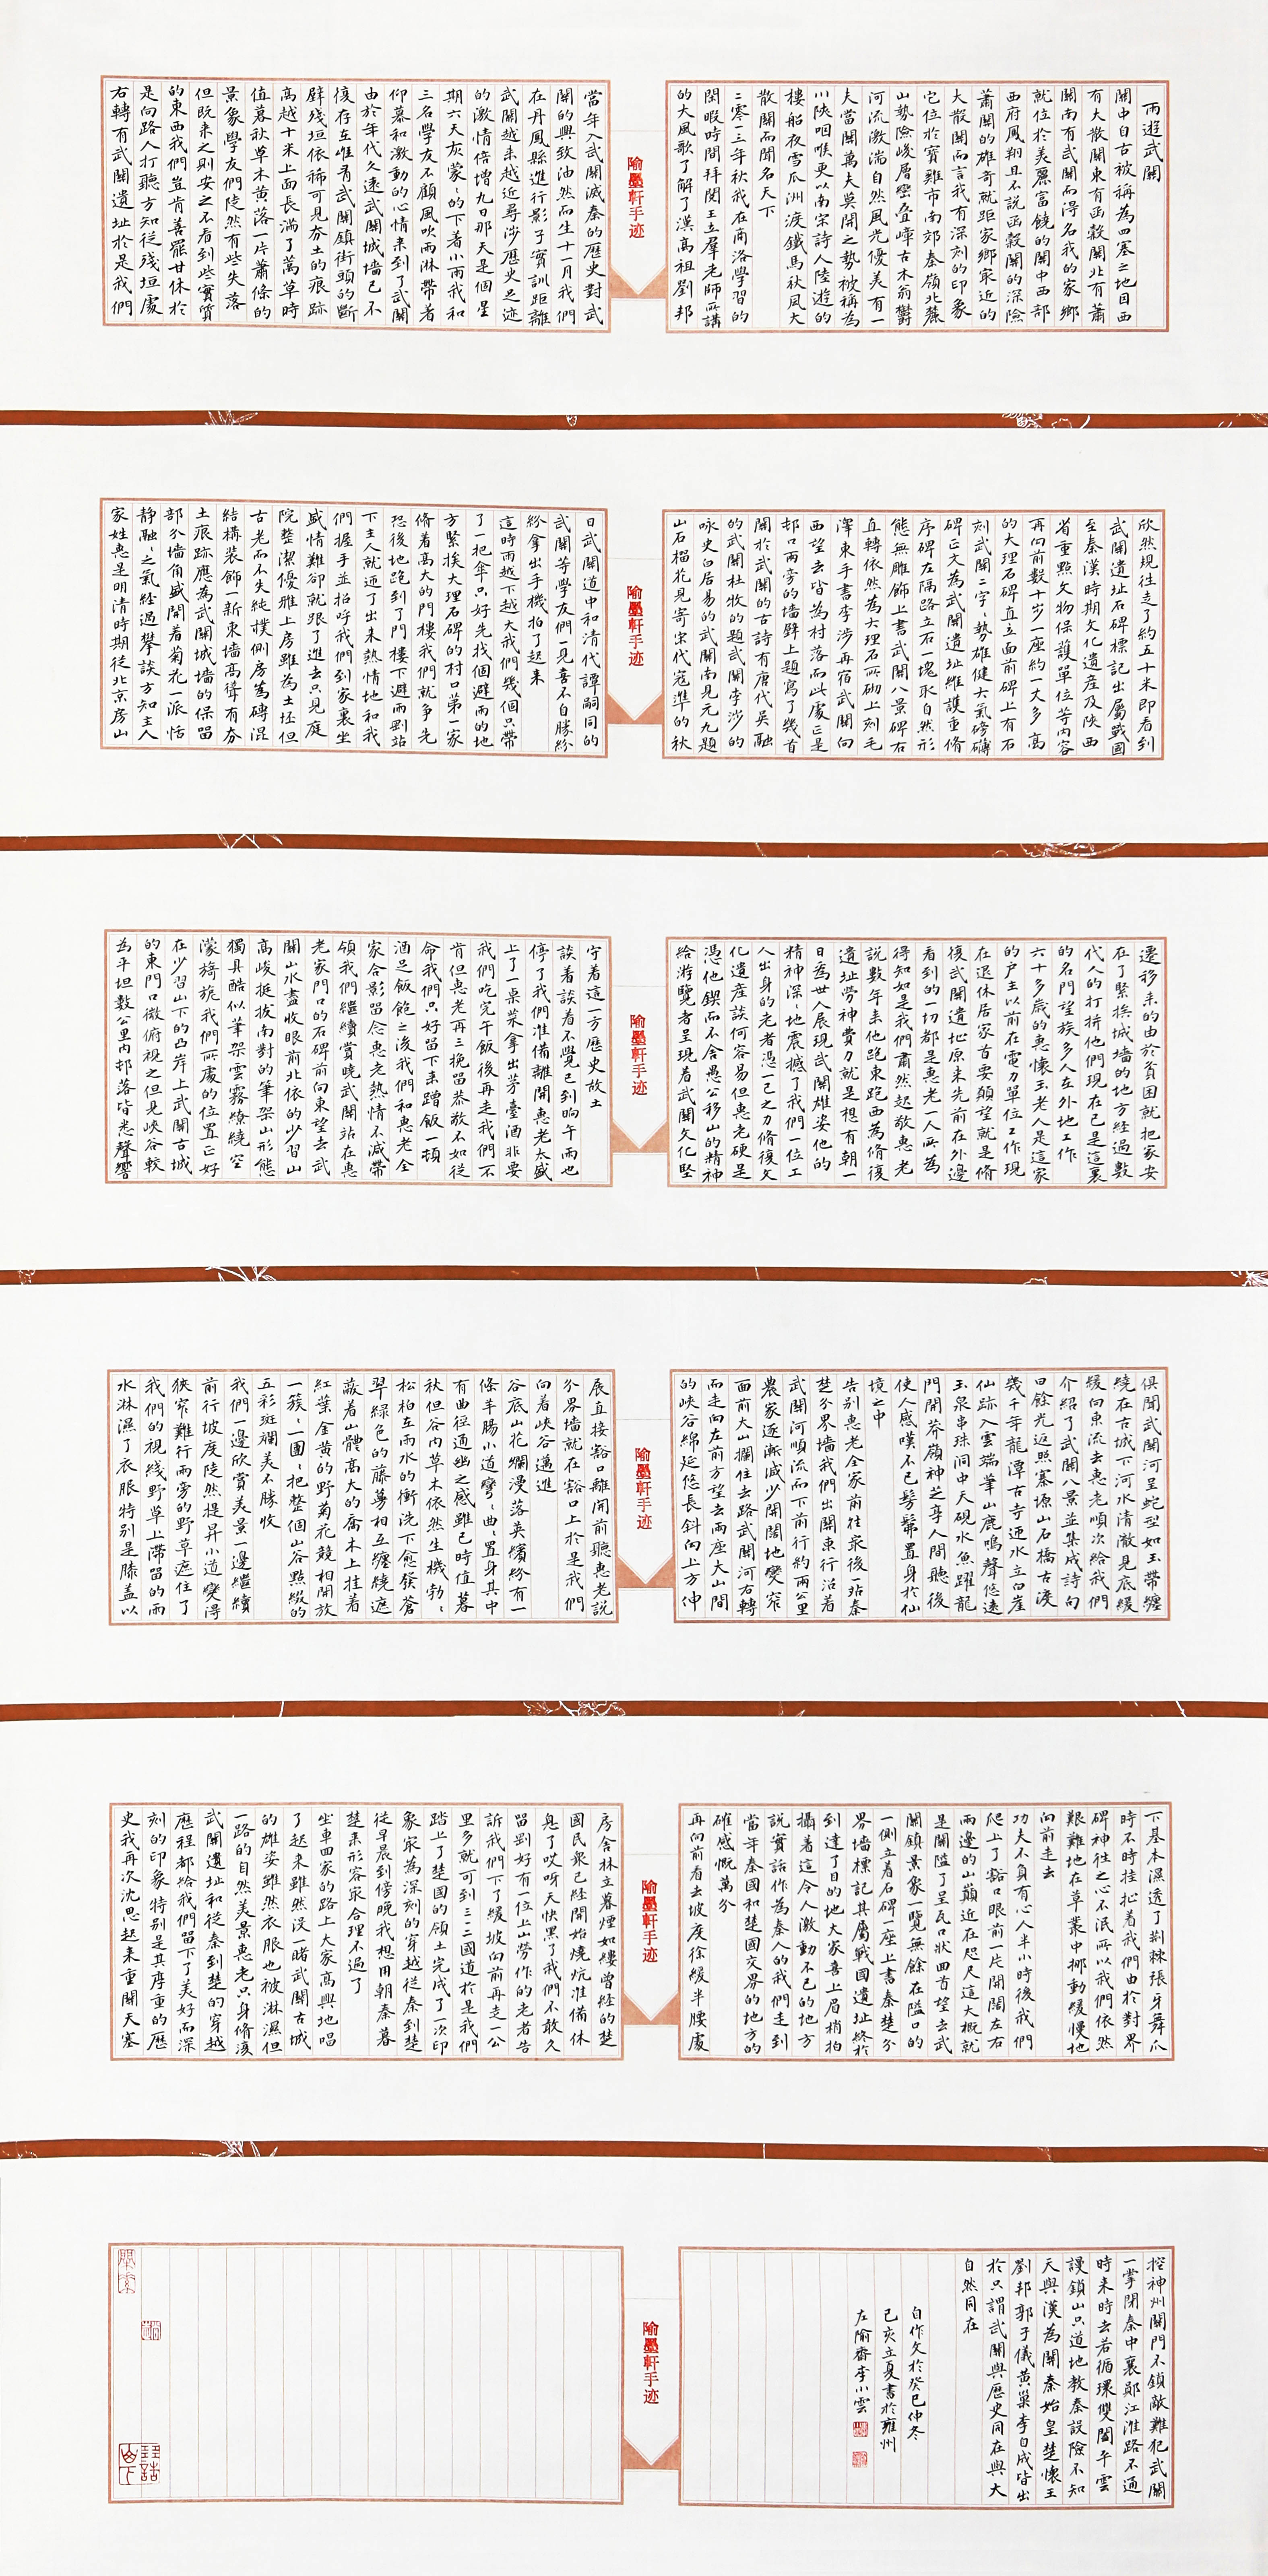 雨遊武關
關中自古被稱為四塞之地因西
有大散關東有函穀關北有蕭
關南有武關而得名我的家鄉
就位於美麗富饒的關中西部
西府鳳翔且不說函穀關的深險
蕭關的雄奇就距家鄉家近的
大散關而言我有深刻的印象
它位於寶雞市南郊秦嶺北麓
山勢險峻層巒叠嶂古木蓊鬱
河流激湍自然風光優美有一
夫當關萬夫莫開之勢被稱為
川陝咽喉更以南宋詩人陸遊的
樓船夜雪瓜洲渡鐵馬秋風大
散關而聞名天下
二零一三年秋我在商洛學習的
閑暇時間拜閱王立羣老師所講
的大風歌了解了漢高祖劉邦
當年入武關滅秦的歷史對武
關的興致油然而生十一月我們
在丹鳳縣進行影子實訓距離
武關越来越近尋涉歷史足迹
的激情倍增九日那天是個星
期六天灰蒙〻的下着小雨我和
三名學友不顧風吹雨淋帶者
仰慕和激動的心情来到了武關
由於年代久遠武關城墙已不
復存在唯有武關鎮街頭的斷
壁殘垣依稀可見夯土的痕跡
高越十米上面長滿了蒿草時
值暮秋草木黄落一片蕭條的
景象學友們陡然有些失落
但既来之則安之不看到些實質
的東西我們豈肯善罷甘休於
是向路人打聽方知從殘垣處
右轉有武關遺址於是我們
欣然規往走了約五十米即看到
武關遺址石碑標記出屬戰國
至秦漢時期文化遺産及陝西
省重點文物保護單位等内容
再向前數十步一座約一丈多高
的大理石碑直立面前碑上有石
刻武關二字〻勢雄健大氣磅礴
碑正文為武關遺址維護重修
序碑左隔路立石一塊取自然形
態無雕飾上書武關八景碑右
直轉依然為大理石所砌上刻毛
澤東手書李涉再宿武關向
西望去皆為村落而此處正是
邨口兩旁的墻壁上題寫了幾首
關於武關的古詩有唐代吴融
的武關杜牧的題武關李涉的
咏史白居易的武關南見元九題
山石榴花見寄宋代寇準的秋
日武關道中和清代譚嗣同的
武關等學友們一見喜不自勝紛
紛拿出手機拍了起来
這時雨越下越大我們幾個只帶
了一把傘只好先找個避雨的地
方緊挨大理石碑的村口第一家
脩着高大的門樓我們就争先
恐後地跑到了門樓下避雨剛站
下主人就迎了出来熱情地和我
們握手並招呼我們到家裏坐
盛情難卻就跟了進去只見庭
院整潔優雅上房雖為土坯但
古老而不失純樸側房為磚混
結構装飾一新東墻高聳有夯
土痕跡應為武關城墻的保留
部分墻角盛開着菊花一派恬
静融〻之氣經過攀談方知主人
家姓惠是明清時期從北京房山
遷移来的由於貧困就把家安
在了緊挨城墻的地方經過數
代人的打拼他們現在已是這裏
的名門望族多人在外地工作
六十多歲的惠懷玉老人是這家
的户主以前在電力單位工作現
在退休居家首要願望就是脩
復武關遺地原来先前在外邊
看到的一切都是惠老一人所為
得知如是我們肅然起敬惠老
説數年来他跑東跑西為脩復
遺址勞神費力就是想有朝一
日為世人展現武關雄姿他的
精神深〻地震撼了我們一位工
人出身的老者憑一己之力脩復文
化遺産談何容易但惠老硬是
憑他鍥而不舍愚公移山的精神
給游覽者呈現着武關文化堅
守着這一方歷史故土
談着談着不覺已到晌午雨也
停了我們准備離開惠老太盛
上了一桌菜拿出茅臺酒非要
我們吃完午飯後再走我們不
肯但惠老再三挽留恭敬不如從
命我們只好留下来蹭飯一頓
酒足飯飽之後我們和惠老全
家合影留念惠老熱情不減帶
領我們繼續賞曉武關站在惠
老家門口的石碑前向東望去武
關山水盡收眼前北依的少習山
高峻挺拔南對的筆架山形態
獨具酷似筆架雲霧繚繞空
濛旖旎我們所處的位置正好
在少習山下的凸岸上武關古城
的東門口微俯視之但見峡谷較
為平坦數公里内邨落皆悉聲響
俱聞武關河呈蛇型如玉帶纏
繞在古城下河水清澈見底緩
緩向東流去惠老順次給我們
介紹了武關八景並集成詩句
曰餘光返照寨塬山石橋古渡
幾千年龍潭古寺迎水立白崖
仙跡入雲端筆山鹿鳴聲悠遠
玉泉串珠洞中天硯水魚躍龍
門開莽嶺神芝辛人間聽後
使人感嘆不已髣髴置身於仙
境之中
告别惠老全家前往家後一站秦
楚分界墻我們出關東行沿着
武關河順流而下前行約兩公里
農家逐漸減少開闊地變窄
面前大山攔住去路武關河右轉
而走向左前方望去兩座大山間
的峡谷綿延悠長斜向上方伸
展直接豁口離開前聽惠老説
分界墻就在豁口上於是我們
向着峡谷邁進
谷底山花爛漫落英繽紛有一
條羊腸小道彎〻曲〻置身其中
有曲径通幽之感雖已時值暮
秋但谷内草木依然生機勃〻
松柏在雨水的衝洗下愈發蒼
翠緑色的藤蔓相互纏繞遮
蔽着山體高大的喬木上挂着
紅葉金黄的野菊花競相開放
一簇〻一團〻把整個山谷點綴的
五彩斑斕美不勝收
我們一邊欣賞美景一邊繼續
前行坡度陡然提昇小道變得
狹窄難行兩旁的野草遮住了
我們的視綫野草上滞留的雨
水淋濕了衣服特别是膝盖以
下基本濕透了荆棘張牙舞爪
時不時挂扯着我們由於對界
碑神往之心不泯所以我們依然
艱難地在草叢中挪動緩慢地
向前走去
功夫不負有心人半小時後我們
爬上了豁口眼前一片開闊左右
兩邊的山巔近在咫尺這大概就
是關隘了呈瓦口狀回首望去武
關鎮景象一覽無餘在隘口的
一側立着石碑一座上書秦楚分
界墻標記其屬戰國遺址終於
到達了目的地大家喜上眉梢拍
攝着這令人激動不已的地方
説實話作為秦人的我們走到
當年秦國和楚國交界的地方的
確感慨萬分
再向前看去坡度徐緩半腰處
房舍林立暮煙如縷曾經的楚
國民衆已經開始燒炕准備休
息了哎呀天快黑了我們不敢久
留剛好有一位上山勞作的老者告
訴我們下了緩坡向前再走一公
里多就可到三一二國道於是我們
踏上了楚國的領土完成了一次印
象家為深刻的穿越從秦到楚
從早晨到傍晚我想用朝秦暮
楚来形容家合理不過了
坐車回家的路上大家高興地唱
了起来雖然没一睹武關古城
的雄姿雖然衣服也被淋濕但
一路的自然美景惠老只身脩復
武關遺址和從秦到楚的穿越
歷程都給我們留下了美好而深
刻的印象特别是其厚重的歷
史我再次沈思起来重關天塞
控神州關門不鎖敵難犯武關
一掌閉秦中襄鄖江淮路不通
時来時去若循環雙闔平雲
謾鎖山只道地教秦設險不知
天與漢為關秦始皇楚懷王
劉邦郭子儀黄巢李自成皆出
於只謂武關與歷史同在與大
自然同在
自作文於癸巳仲冬
己亥立夏書於雍州
左隃齋李小雲
隃墨軒手迹
隃墨軒手迹
隃墨軒手迹
隃墨軒手迹
隃墨軒手迹
隃墨軒手迹